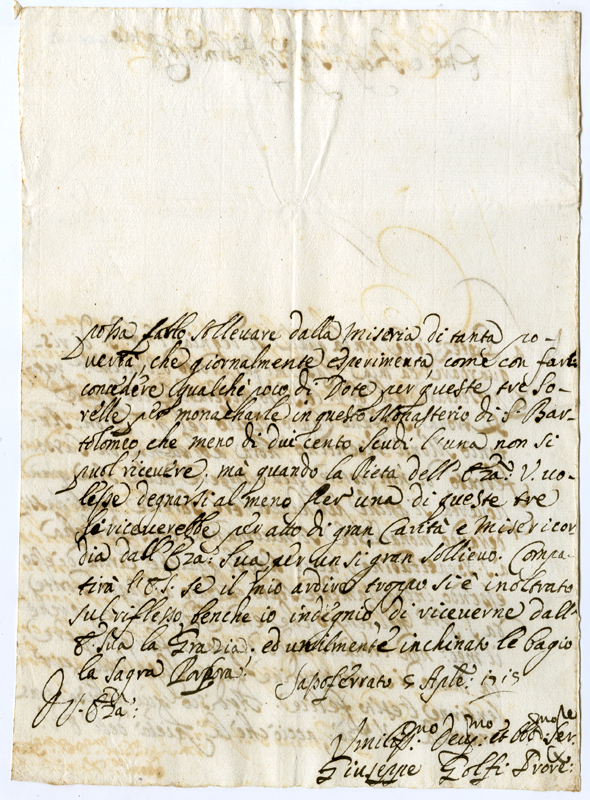 possa farlo sollevare dalla Miseria di tanta po-
vertà, che giornalmente esperimenta, come con farli
concedere qualche poco di Dote per queste tre So-
relle per monacharle in questo Monasterio di S. Bar-
tolomeo, che meno di duicento Scudi l'una non si
puol ricevere; mà quando la Pietà dell' Eza: V. vo-
lesse degnarsi al meno per una di queste tre
si riceverebbe per atto di gran Carità e Misericor
dia dall' Eza: Sua per un si gran sollievo. Compa-
tirà l'E.S. se il mio ardire troppo si è inoltrato
sul riflesso, benche io indignio di riceverne dall'
E. Sua la Grazia. ed umilmente inchinato le bagio
la Sagra Porpora.
Sassoferrato 5 Aple:
V. Eza:
Umiliss.mo Dev.mo et Obb.mo Ser.re
Giuseppe Golfi Prove: